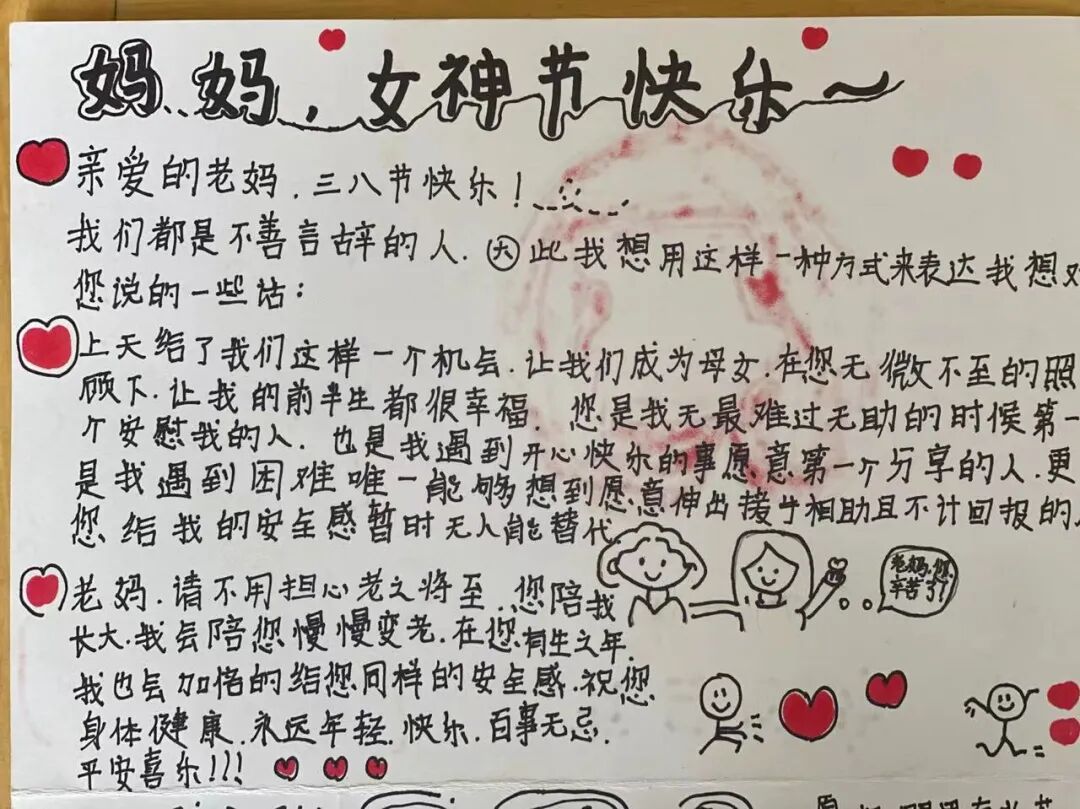 妈妈，女神节快乐～
亲爱的老妈，三八节快乐！
我们都是不善言辞的人，因此我想用这样一种方式来表达我想对
您说的一些话：
上天给了我们这样一个机会，让我们成为母女，在您无微不至的照
顾下，让我的前半生都很幸福，您是我无最难过无助的时候第一
个安慰我的人，也是我遇到开心快乐的事愿意第一个分享的人，更
是我遇到困难唯一能够想到愿意伸出援手相助且不计回报的人
您给我的安全感暂时无人能替代
老妈，您
辛苦了！
老妈，请不用担心老之将至，您陪我
长大，我会陪您慢慢变老，在您有生之年，
我也会加倍的给您同样的安全感，祝您
身体健康，永远年轻，快乐，百事无忌，
平安喜乐！！！